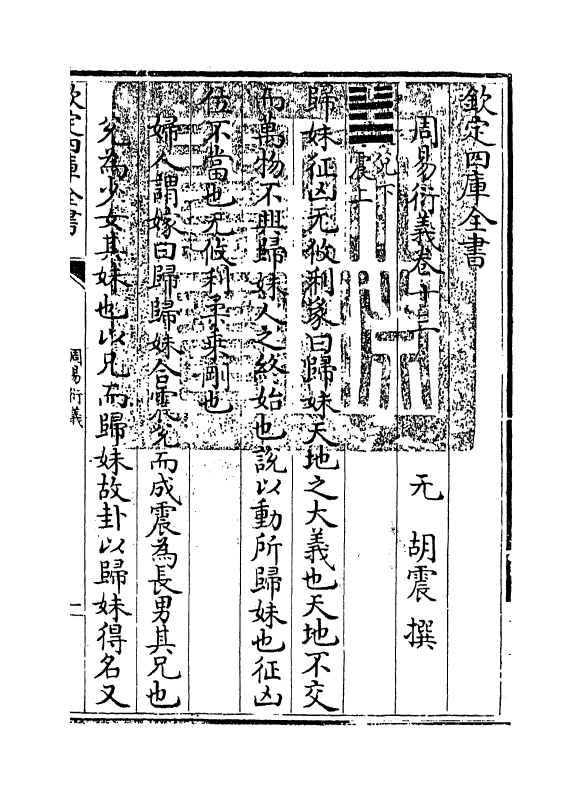 欽定四庫全書
周易衍義卷十三
元 胡震 撰
兌下
震上
歸妹征凶无攸利彖曰歸妹天地之大義也天地不交
而萬物不興歸妹人之終始也說以動所歸妹也征凶
位不當也无攸利柔乗剛也
婦人謂嫁曰歸歸妹合震兌而成震為長男其兄也
兌為少女其妹也以兄而歸妹故卦以歸妹得名又
欽定四庫全書
周易衍義